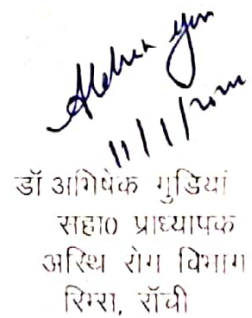 11/1/
डॉ अभिषेक गुडियां
सहा० प्राध्यापक
अस्थि रोग विभाग
रिम्स, राँची